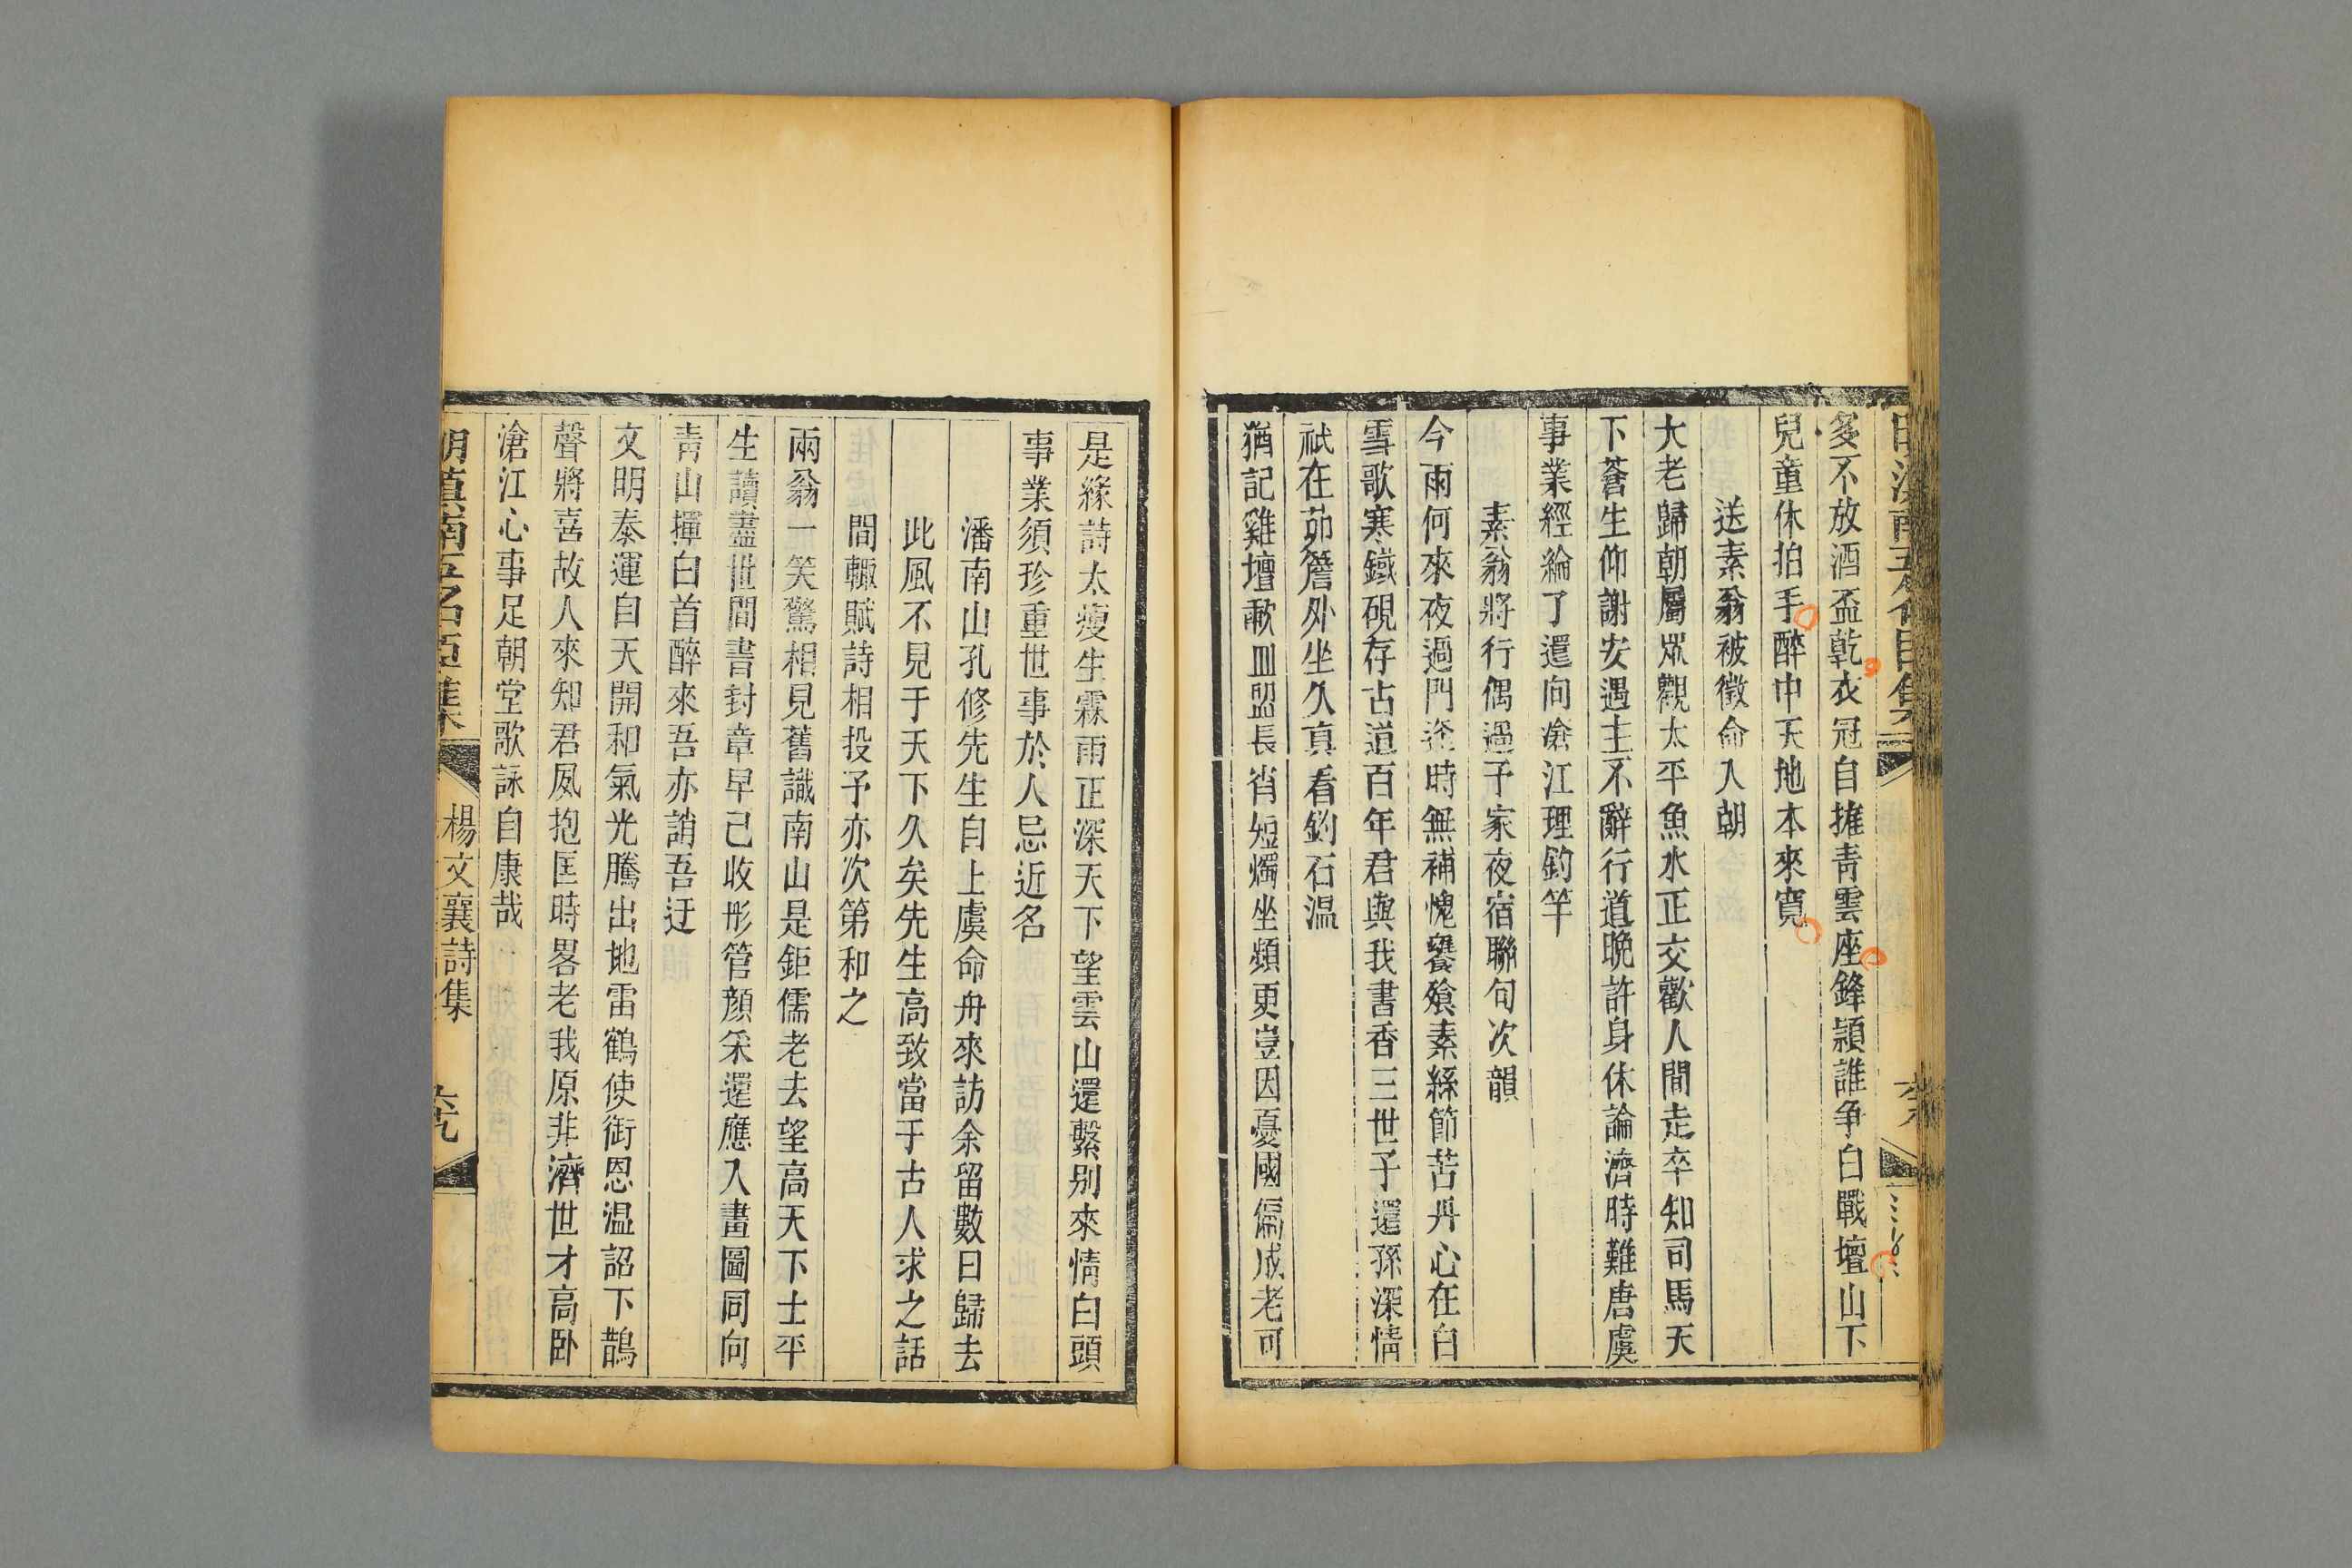 多不放酒盃乾衣冠自擁青雲座鋒穎誰爭白戰壇山下
兒童休拍手醉中天地本來寬
送素翁被徵命入朝
大老歸朝屬眾觀太平魚水正交歡人間走卒知司馬天
下蒼生仰謝安遇主不辭行道晚許身休論濟時難唐虞
事業經綸了還向滄江理釣竿
素翁將行偶過予家夜宿聯句次韻
今雨何來夜過門逢時無補愧饔飧素絲節苦丹心在白
雪歌寒鐵硯存古道百年君與我書香三世子還孫深情
祇在茆簷外坐久真看釣石溫
猶記雞壇歃血盟長宵短燭坐頻更豈因憂國偏成老可
是緣詩太瘦生霖雨正深天下望雲山還繫別來情白頭
事業須珍重世事於人忌近名
潘南山孔修先生自上虞命舟來訪余留數日歸去
此風不見于天下久矣先生高致當于古人求之話
間輙賦詩相投予亦次第和之
兩翁一笑驚相見舊識南山是鉅儒老去望高天下士平
生讀盡世間書封章早已收彤管顔采還應入畫圖同向
青山揮白首醉來吾亦誚吾迂
文明泰運自天開和氣光騰出地雷鶴使銜恩温詔下鵲
聲將喜故人來知君夙抱匡時畧老我原非濟世才高卧
滄江心事足朝堂歌詠自康哉
明滇南五名臣集 楊文襄詩集